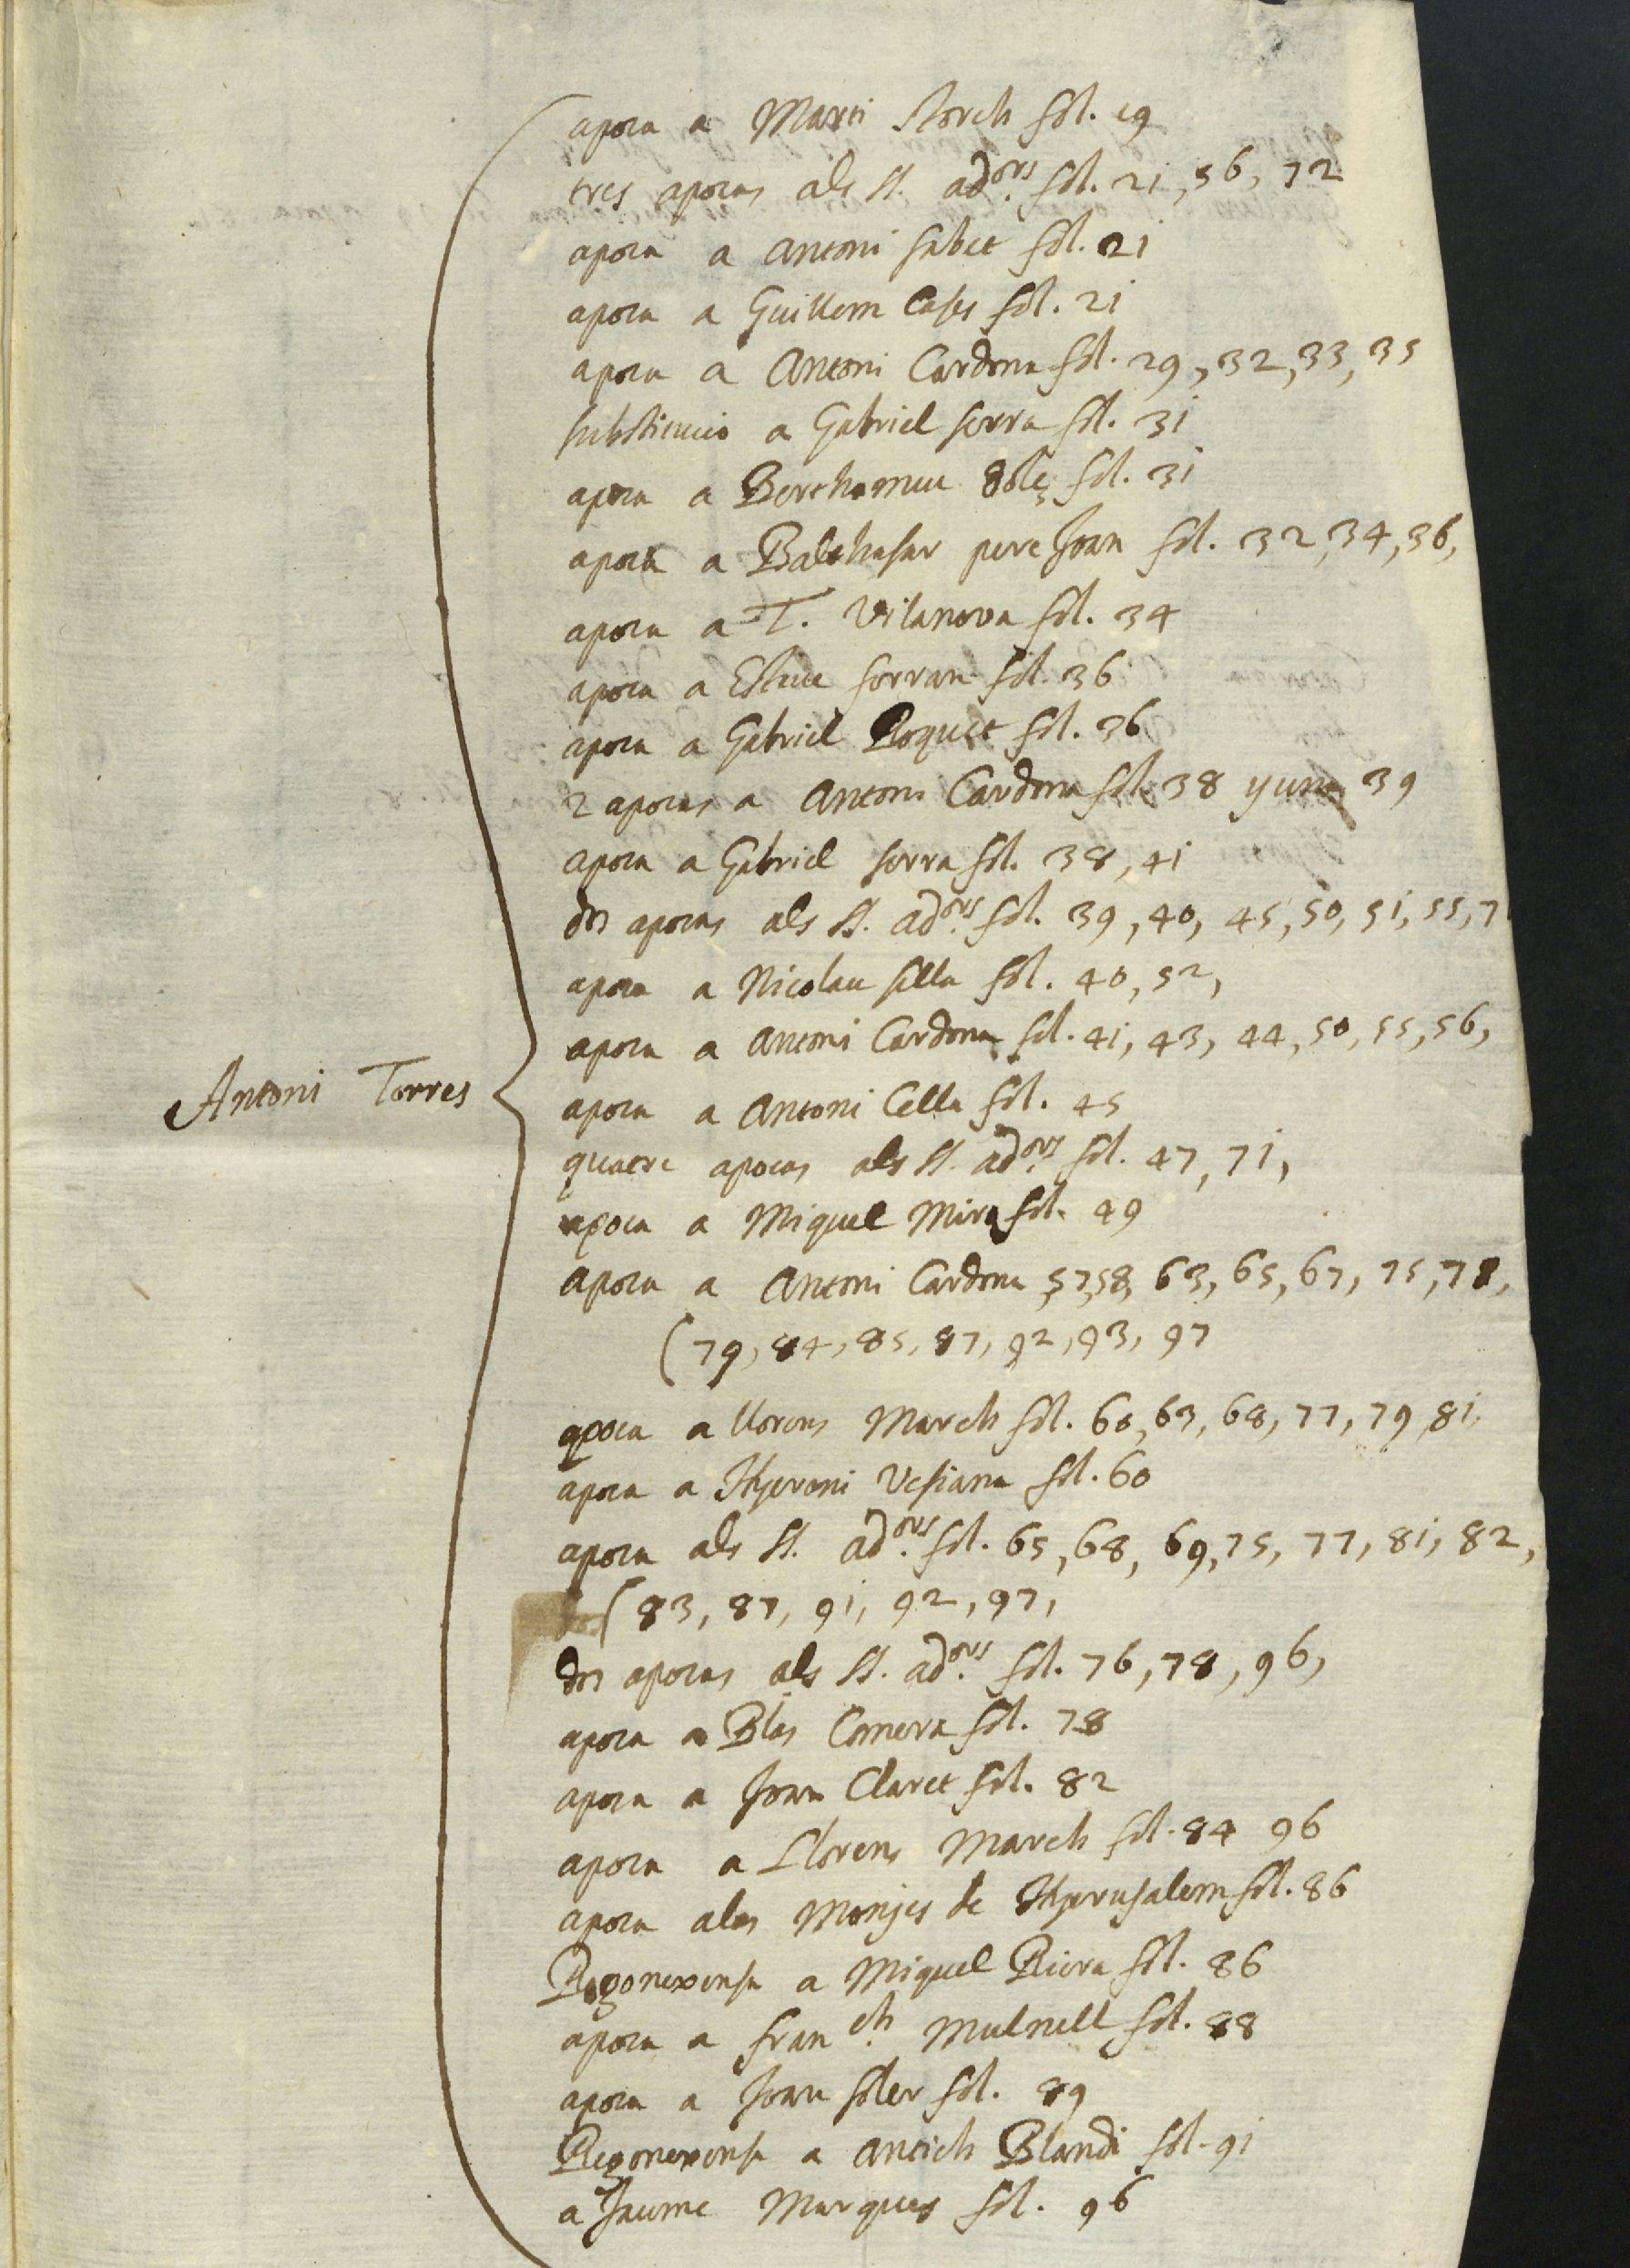 apoca a Marti Storch fol. 19
tres apocas als ss. ad.ors fol. 21, 56, 72
apoca a Antoni sabet fol. 21
apoca a Guillem Cases fol. 21
apoca a Antoni Cardona fol. 29, 32, 33, 35
substitucio a Gabriel serra fol. 31
apoca a Berthomeu fol. 31
apoca a Balthasar pere Joan fol. 32, 34, 36,
apoca a T. Vilanova fol. 34
apoca a Esteve ferran fol. 36
apoca a Gabriel Roquet fol. 36
2 apocas a Antoni Cardona fol. 38 y una 39
apoca a Gabriel serra fol. 38, 41
dos apocas als ss. ad.ors fol. 39, 40, 45, 50, 51, 55, 7
apoca a Nicolau silla fol. 40, 52,
apoca a Antoni Cardona fol. 41, 43, 44, 50, 55, 56,
Antoni Torres
apoca a Antoni Cella fol. 45
quatre apocas als ss. ad.ors fol. 47, 71,
apoca a Miquel Mira fol. 49
apoca a Antoni Cardona 57, 58, 63, 65, 67, 75, 78,
(79, 84, 85, 87, 92, 93, 97
apoca a llorens March fol. 60, 63, 68, 77, 79, 81,
apoca a Hyeroni Vesiana fol. 60
apoca als ss. ad.ors fol. 65, 68, 69, 75, 77, 81, 82,
(83, 87, 91, 92, 97,
dos apocas als ss. ad.ors fol. 76, 78, 96,
apoca a Blas Comera fol. 78
apoca a Joan Claret fol. 82
apoca a Llorens March fol. 84 96
apoca a les Monjes de Hyerusalem fol. 86
Regonexensa a Miquel Riera fol. 86
apoca a fran.ch Mulnell fol. 88
apoca a Joan soler fol. 89
Regonexensa a Antich Blandi fol. 91
a Jaume Marques fol. 96